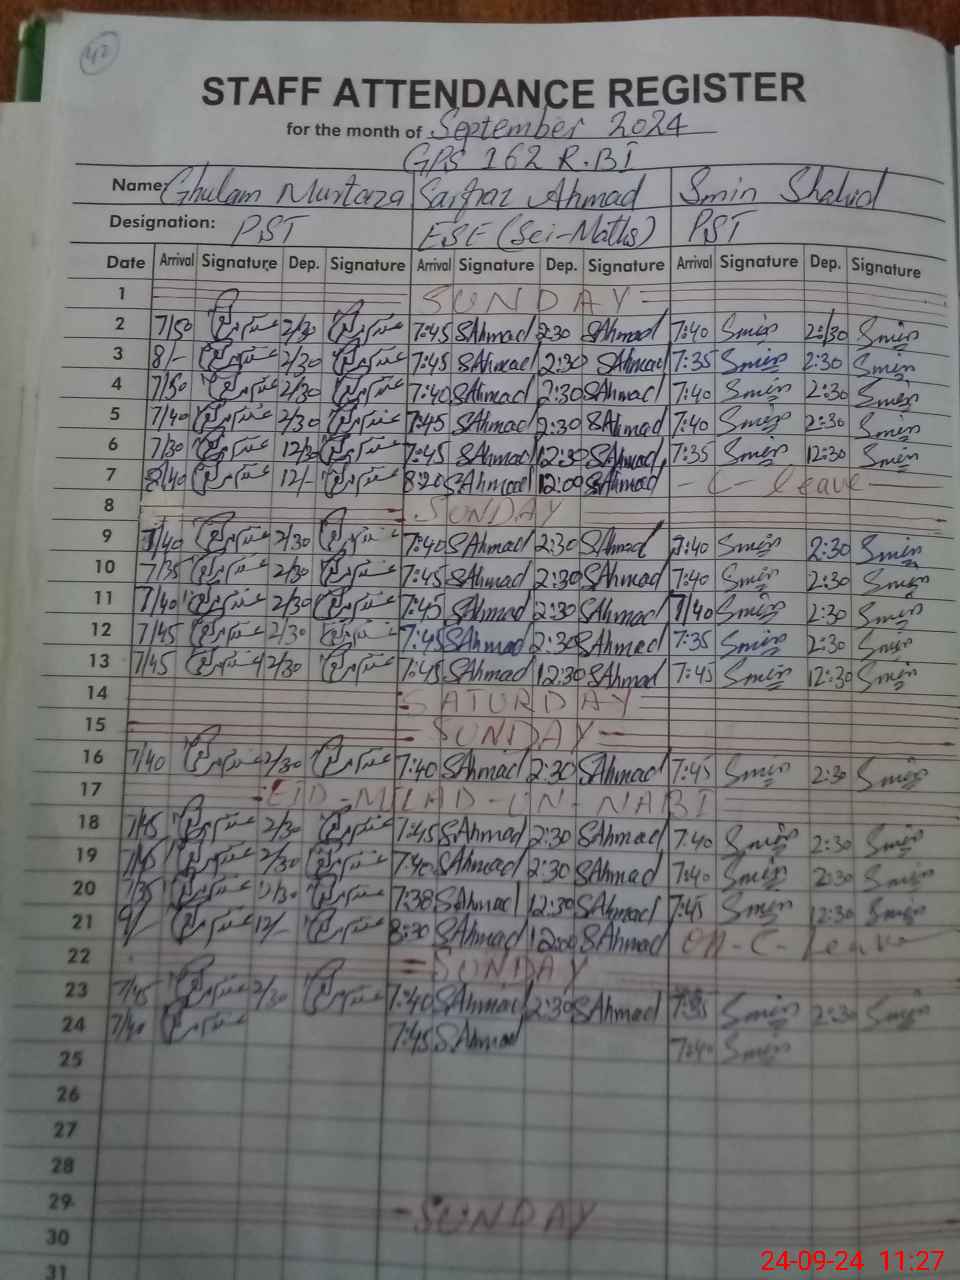 42
STAFF ATTENDANCE REGISTER
for the month of September 2024
GPS 162 R.BI
Name: Ghulam Murtaza Sarfraz Ahmad Smin Shahid
Designation: PST ESE (Sci-Maths) PST
Date Arrival Signature Dep. Signature Arrival Signature Dep. Signature Arrival Signature Dep. Signature
1 SUNDAY
2 7/50 2/30 7:45 SAhmad 2:30 SAhmad 7:40 Smin 2:30 Smin
3 8/- 2/30 7:45 SAhmad 2:30 SAhmad 7:35 Smin 2:30 Smin
4 7/50 2/30 7:40 SAhmad 2:30 SAhmad 7:40 Smin 2:30 Smin
5 7/40 2/30 7:45 SAhmad 2:30 SAhmad 7:40 Smin 2:30 Smin
6 7/30 12/30 7:45 SAhmad 12:30 SAhmad 7:35 Smin 12:30 Smin
7 8/40 12/- 8:20 SAhmad 12:00 SAhmad - C - leave
8 SUNDAY
9 7/40 2/30 7:40 SAhmad 2:30 SAhmad 7:40 Smin 2:30 Smin
10 7/35 2/30 7:45 SAhmad 2:30 SAhmad 7:40 Smin 2:30 Smin
11 7/40 2/30 7:45 SAhmad 2:30 SAhmad 7/40 Smin 2:30 Smin
12 7/45 2/30 7:45 SAhmad 2:30 SAhmad 7:35 Smin 2:30 Smin
13 7/45 2/30 7:45 SAhmad 12:30 SAhmad 7:45 Smin 12:30 Smin
14 SATURDAY
15 SUNDAY
16 7/40 2/30 7:40 SAhmad 2:30 SAhmad 7:45 Smin 2:30 Smin
17 EID-MILAD-UN-NABI
18 7/45 2/30 7:45 SAhmad 2:30 SAhmad 7:40 Smin 2:30 Smin
19 7/45 2/30 7:40 SAhmad 2:30 SAhmad 7:40 Smin 2:30 Smin
20 7/35 12/30 7:38 SAhmad 12:30 SAhmad 7:45 Smin 12:30 Smin
21 9/- 12/- 8:30 SAhmad 12:00 SAhmad On - C - Leave
22 SUNDAY
23 7/45 2/30 7:40 SAhmad 2:30 SAhmad 7:35 Smin 2:30 Smin
24 7/40 7:45 SAhmad 7:40 Smin
25
26
27
28
29 SUNDAY
30
31
24-09-24 11:27